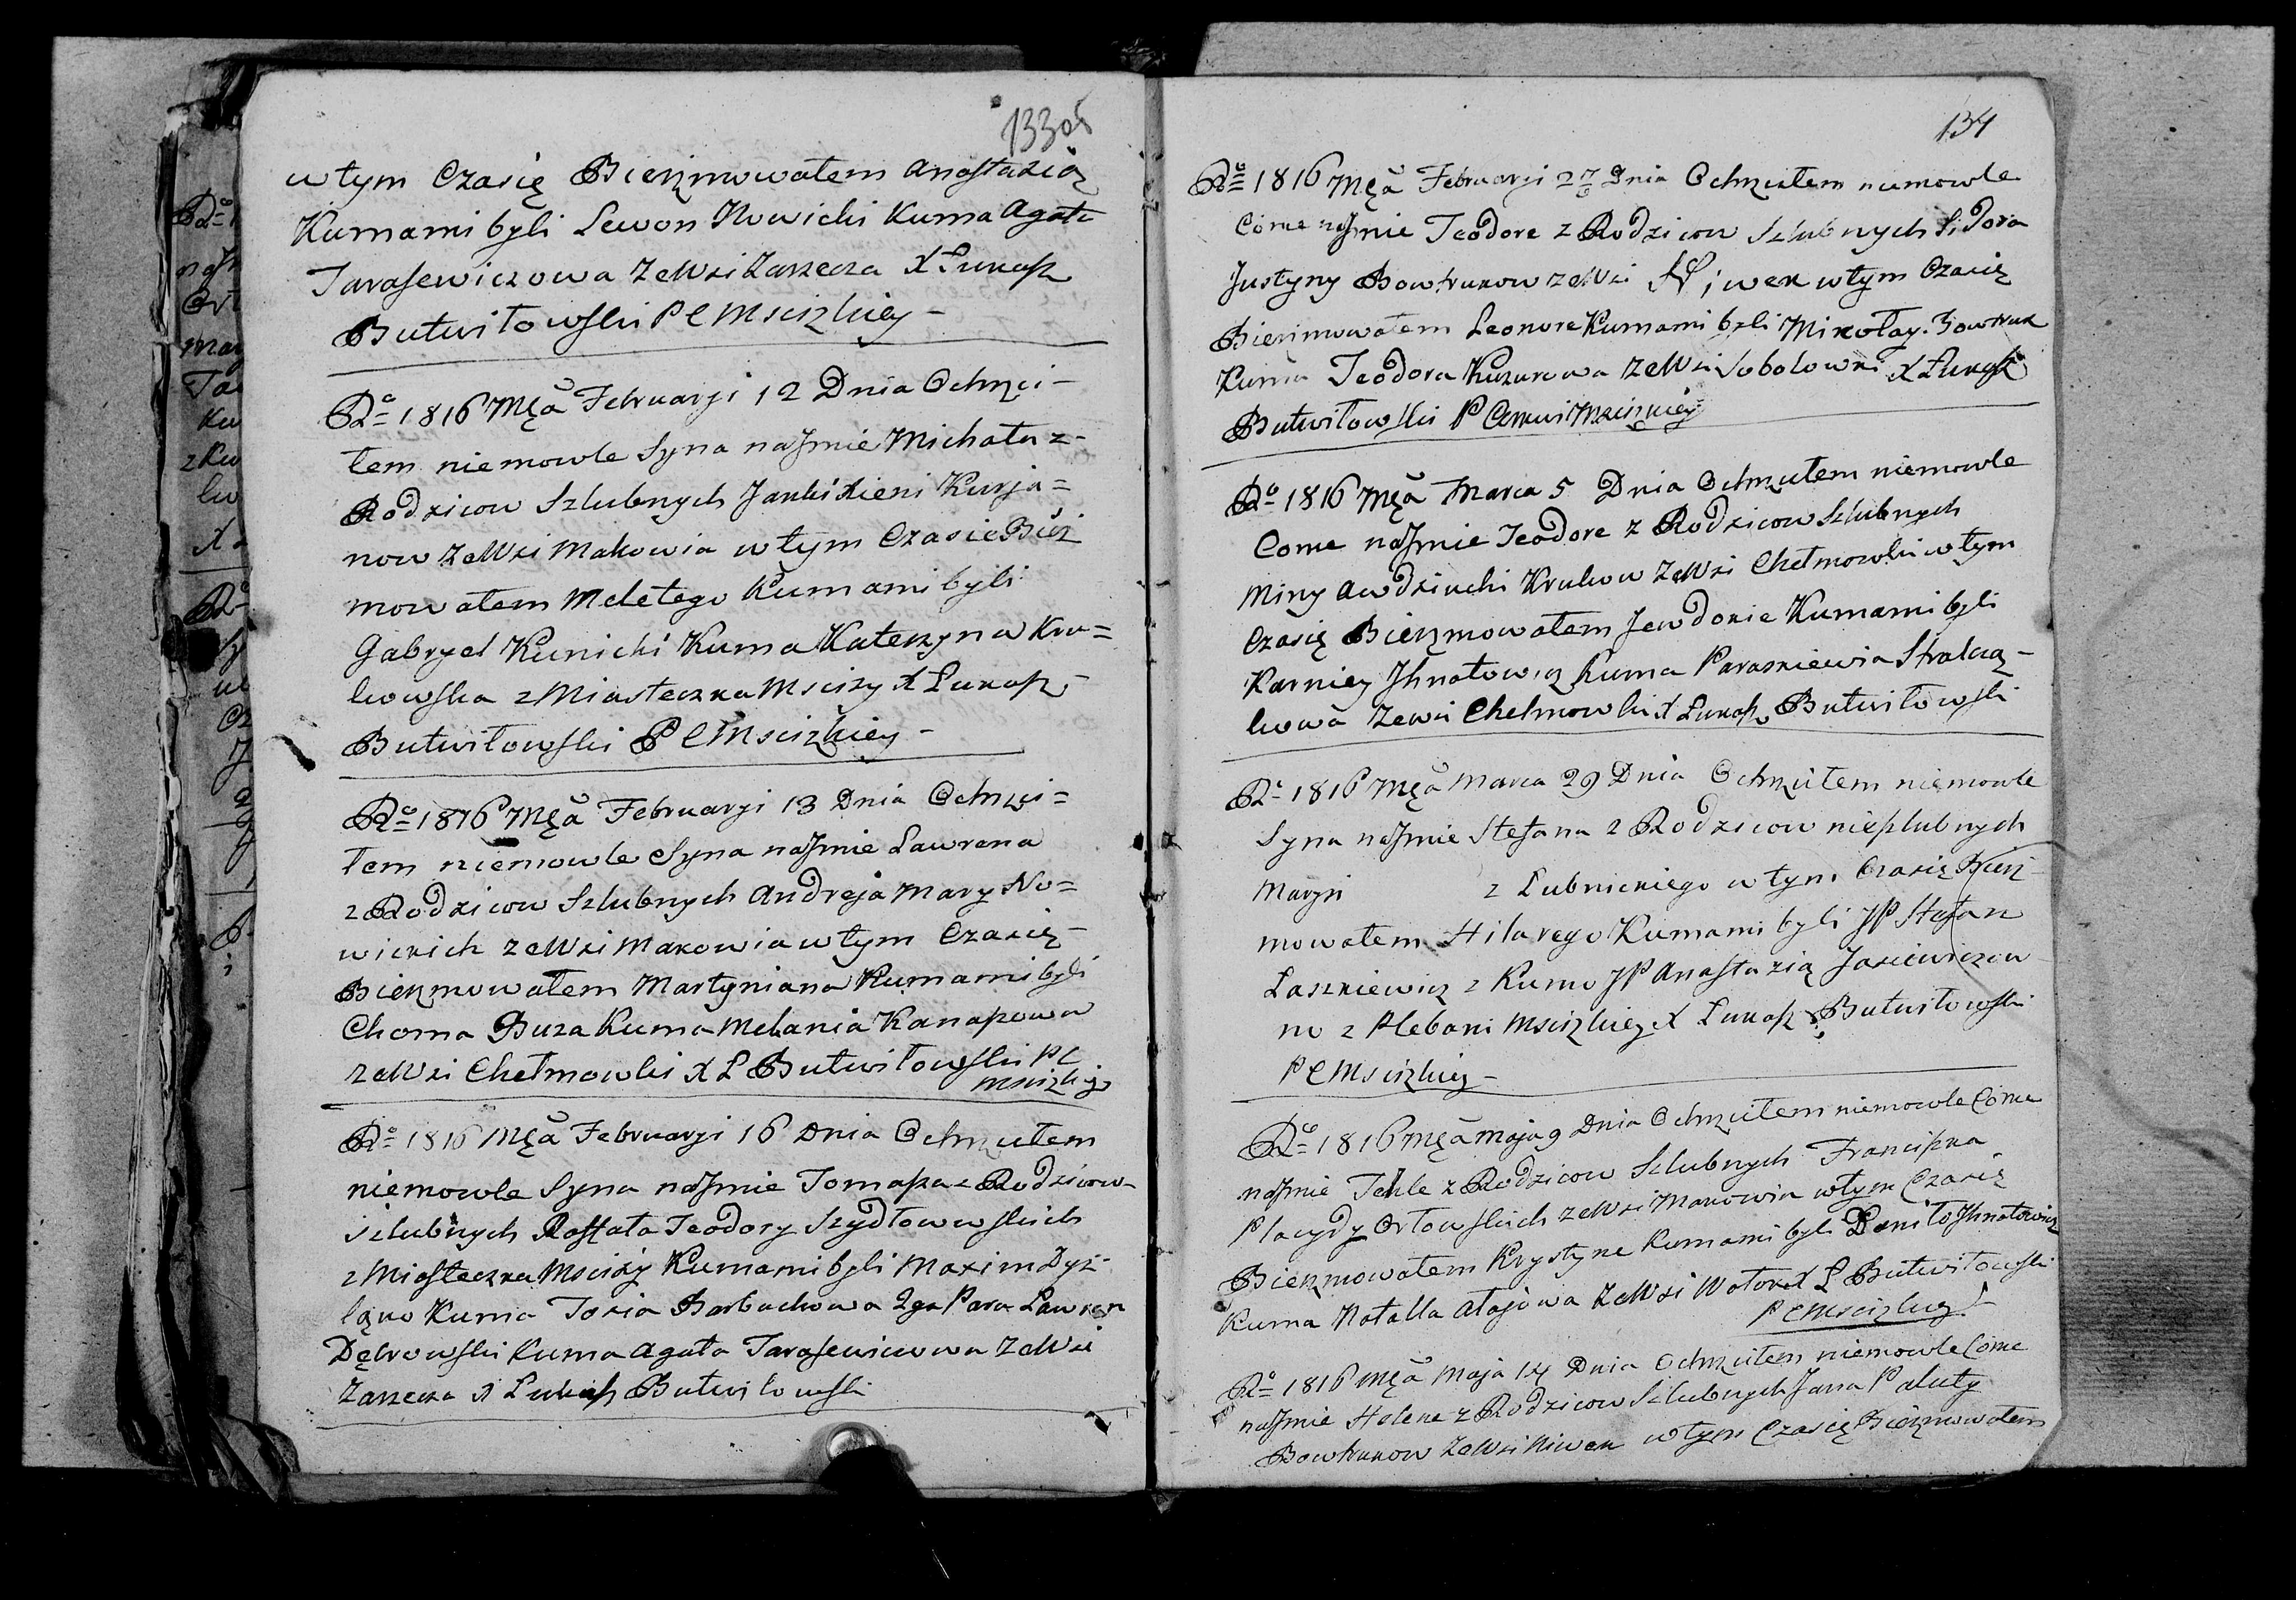 133об
w tym Czasię Bierzmowałem Anastazią
Kumami byli Lewon Nowicki Kuma Agata
Tarasewiczowa ze Wsi Zarzecza X Łukasz
Butwiłowski P C Mscizkiey
Rº 1816 Mcã Februaryi 12 Dnia Ochrzci-
łem niemowle Syna na Jmie Michała z
Rodzicow Szlubnych Janki Xieni Kurja=
now ze Wsi Makowia w tym Czasie Bierz
mowałem Meletego Kumami byli
Gabryel Kunicki Kuma Katerzyna Kru=
kowska z Miasteczka Msciży X Łukasz
Butwiłowski P C Mscizkiey
Rº 1816 Mcã Februaryi 13 Dnia Ochrzci=
łem niemowle Syna na Jmie Lawrena
z Rodzicow Szlubnych Andreja Mary No=
wickich ze Wsi Makowia w tym Czasię
Bierzmowałem Martyniana Kumami byli
Choma Buza Kuma Melania Kanaszowa
ze Wsi Chełmowki X Ł Butwiłowski P C
Mscizkiey
Rº 1816 Mcã Februaryi 16 Dnia Ochrzciłem
niemowle Syna na Jmie Tomasza z Rodzicow
szlubnych Rafała Teodory Szydłowskich
z Miasteczka Msciży Kumami byli Maxim Dyz-
Kuma Tozia Barbuchowa 2ga Para Lawren
Dębrowski Kuma Agata Tarasewiczowa ze Wsi
Zarzecza X Łukasz Butwiłowski
134
Rº 1816 Mcã Februaryi 27 Dnia Ochrzciłem niemowle
Come na Jmie Teodore z Rodzicow Szlubnych Sidora
Justyny Bowtrukow ze Wsi Niwek w tym Czasię
Bierzmowałem Leonore Kumami byli Mikołay Bowtruk
Kuma Teodora Kuzurowa ze Wsi Sobolowki X Łukasz
Butwiłowski P Cerkwi Mscizkiey
Rº 1816 Mcã Marca 5 Dnia Ochrzciłem niemowle
Come na Jmie Teodore z Rodzicow Szlubnych
Miny Awdziuchi Krukow ze Wsi Chełmowki w tym
Czasię Bierzmowałem Jewdokie Kumami byli
Karniey Jhnatowicz Kuma Paraskiewia
ze wsi Chełmowki X Łukasz Butwiłowski
Rº 1816 Mcã Marca 29 Dnia Ochrzciłem niemowle
Syna na Jmie Stefana z Rodzicow nieszlubnych
Maryi z Lubnickiego w tym Czasię Bierz
mowałem Hilarego Kumami byli JP Stefan
Laszkiewicz z Kumo JP Anastazią Jasiewiczow
no z Plebani Mscizkiey X Łukasz Butwiłowski
P C Mscizkiey
Rº 1816 Mcã Maja 9 Dnia Ochrzciłem niemowle Come
na Jmie Tekle z Rodzicow Szlubnych Franciszka
Placydy Orłowskich ze Wsi Makowia w tym Czasię
Bierzmowałem Krystyne Kumami byli Daniło Jhnatowicz
Kuma Natalla Atajowa ze Wsi Wołok X Ł Butwiłowski
P C Mscizkiey
Rº 1816 Mcã Maja 14 Dnia Ochrzciłem niemowle Come
na Jmie Helene z Rodzicow Szlubnych Jana Paluty
Bowtrukow ze Wsi Niwek w tym Czasię Bierzmowałem